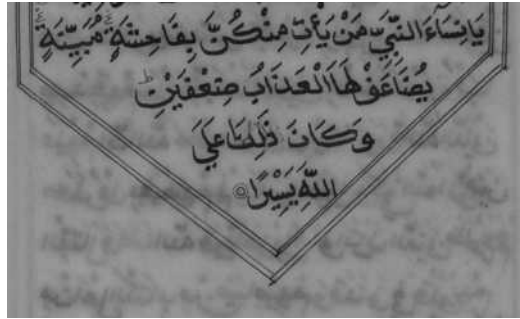 يَانِسَاءَ النَّبِيِّ مَنْ يَأْتِ مِنْكُنَّ بِفَاحِشَةٍ مُبَيِّنَةٍ
يُضَاعَفْ لَهَا الْعَذَابُ ضِعْفَيْنِ ط
وَكَانَ ذَلِكَ عَلَى
اللَّهِ يَسِيْرًا